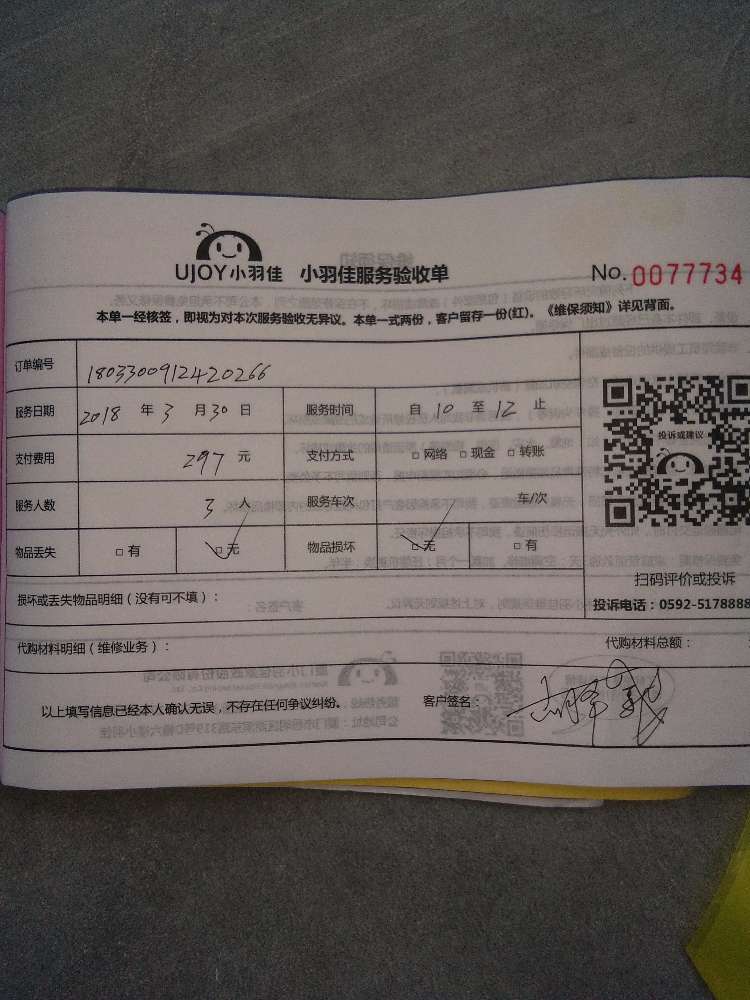 UJOY小羽佳 小羽佳服务验收单 No. 0077734
本单一经核签，即视为对本次服务验收无异议。本单一式两份，客户留存一份(红)。《维保须知》详见背面。
订单编号 180330091242026​6
服务日期 2018 年 3 月 30 日 服务时间 自 10 至 12 止
支付费用 297 元 支付方式 □ 网络 □ 现金 □ 转账
服务人数 3 人 服务车次 车/次
物品丢失 □ 有 □ 无 物品损坏 □ 无 □ 有
投诉或建议
扫码评价或投诉
投诉电话：0592-5178888
损坏或丢失物品明细（没有可不填）：
代购材料明细（维修业务）： 代购材料总额：
以上填写信息已经本人确认无误，不存在任何争议纠纷。 客户签名：